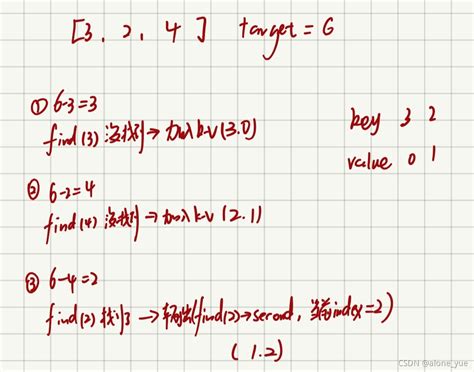 [3, 2, 4] target = 6
① 6-3=3
find(3) 没找到→加入k-v(3.0)
key 3 2
value 0 1
② 6-2=4
find(4) 没找到→加入k-v(2.1)
③ 6-4=2
find(2) 找到了→ (find(2)→second, 当前index=2)
(1.2)
CSDN @alone_yue